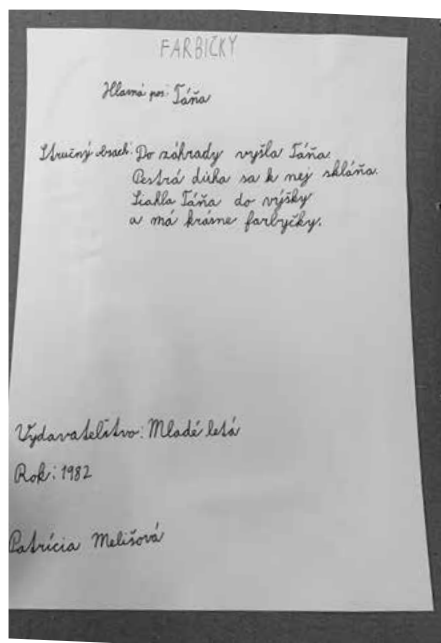 FARBIČKY
Hlavná pos: Táňa
Stručný obsah: Do záhrady vyšla Táňa.
Pestrá dúha sa k nej skláňa.
Siahla Táňa do výšky
a má krásne farbyčky.
Vydavateľstvo: Mladé letá
Rok: 1982
Patrícia Melišová